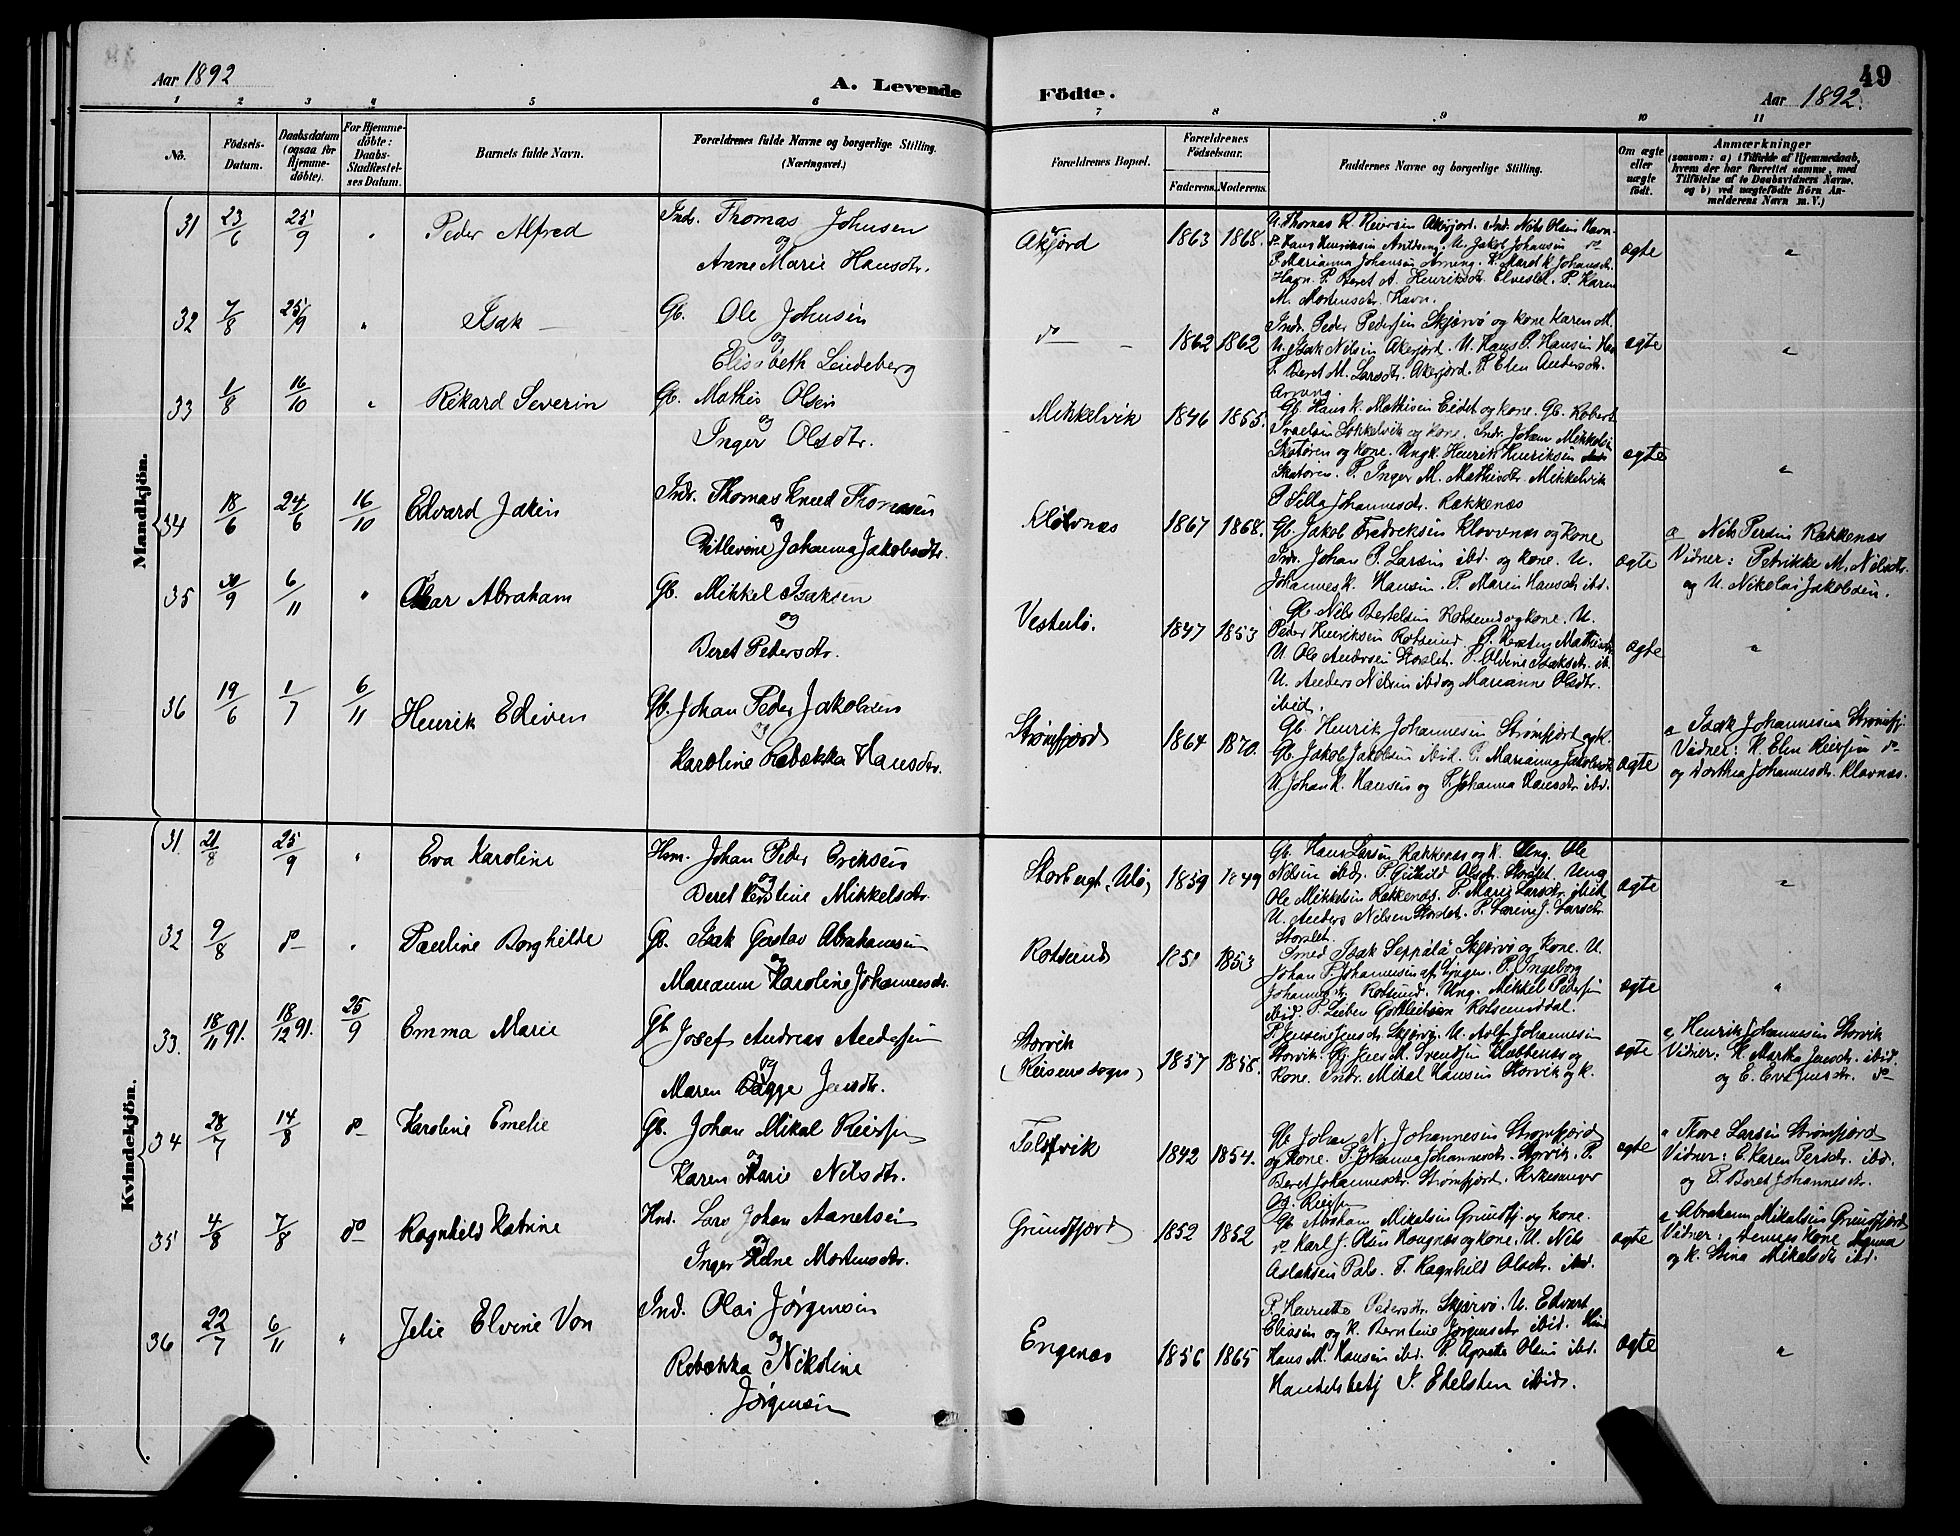 Aar 1892
A. Levende
Födte.
Aar 1892.
49
1 2 3 4 5 6 7 8 9 10 11
No.
Födsels-Datum.
Daabsdatum (ogsaa for Hjemmedöbte).
For Hjemmedöbte: Daabs-Stadfæstelses Datum.
Barnets fulde Navn.
Forældrenes fulde Navne og borgerlige Stilling. (Næringsvei.)
Forældrenes Bopæl.
Forældrenes Födselsaar.
Faderens. Moderens.
Faddernes Navne og borgerlige Stilling.
Om ægte eller uægte födt.
Anmærkninger
(saasom: a) i Tilfælde af Hjemmedaab, hvem der har forrettet samme, med Tilföielse af to Daabsvidners Navne, og b) ved uægtefödte Börn Anmelderens Navn m. V.)
Mandkjön.
31 23/6 25/9 "
Peder Alfred
Inds. Thomas Johnsen
og
Anne Marie Hansdtr.
Akjørd
1863 1868.
Hans Henriksen
U. Jakob Johansen do
P. Marianna Johansen
Havn. P. Beret A. Henriksdtr. Elveslet. P. Karen
M. Mortensdtr. Havn.
ægte
"
32 7/8 25/9 "
Isak —
Gb. Ole Johnsen
og
Elisabeth Lindeberg
do —
1862 1862
Inds. Peder Pedersen Skjærvø og kone Karen M.
U. Isak Nilsen Akerjord. U. Hans P. Hansen
P. Beret M. Larsdtr. Akerjord. P. Elen Andersdtr.
ægte
"
33 1/8 16/10 "
Rikard Severin
Gb. Mathis Olsen
og
Inger Olsdtr.
Mikkelvik
1846 1855.
Gb. Hans K. Mathisen Eidet og kone. Gb. Robert
og kone. Inds. Johan Mikkelsen
Skatøren og kone. Ungk. Henrik Henriksen
Skatøren. P. Inger M. Mathisdtr. Mikkelvik
P. Sella Johannesdtr. Rakkenæs
ægte
"
34 18/6 24/6 16/10
Edvard Jakin
Inds. Thomas Knud Thomasen
og
Ditlevine Johanna Jakobsdtr.
Klovnæs
1867 1868.
Gb. Jakob Fredriksen Klovnæs og kone
Inds. Johan P. Larsen ibd. og kone. U.
Johannes K. Hansen. P. Maren Hansdtr. ibd.
ægte
a Nils Persen Rakkenæs
Vidner: Petrikke M. Nilsdtr.
og U. Nikolai Jakobsen.
35 30/9 6/11 "
Abraham
Gb. Mikkel Isaksen
og
Beret Pedersdtr.
Vesterlø.
1847 1853
Gb. Nils Bertelsen Rotsund og kone. U.
Peder Henriksen Rotsund.
U. Ole Andersen Storslet. P. Oldine Isaksdtr. ib.
U. Anders Nilsen ibd og Marianne Olsdtr.
ibid.
ægte
"
36 19/6 1/7 6/11
Henrik Ediven
Gb. Johan Peder Jakobsen
og
Karoline Rebækka Hansdtr.
Strømfjord
1864 1870.
Gb. Henrik Johannesen Strømfjord og K.
Gb. Jakob Jakobsen ibid. P. Marianna Jakobsdtr.
U. Johan K. Hansen og P. Johanna Hansdtr ibd.
ægte
a Isak Johannesen Strømfj.
Vidner: K. Elen Reiersen do
og Dorthea Johannesdtr. Klovnæs.
Kvindekjön.
31. 21/8 25/9 "
Eva Karoline
Hsm. Johan Peder Eriksen
og
Beret Kerstine Mikkelsdtr.
1859 1849
Gb. Hans Larsen Rakkenæs og K. Ung. Ole
Nilsen ibd. P. Olsdtr. Storslet. Ung
Ole Mikkelsen Rakkenæs. P. Marie Larsdtr. ibid
U. Anders Nilsen Storslet. P. Larsdtr.
Storslet.
ægte
"
32 9/8 do "
Pauline Borghilde
Gb. Isak Gustav Abrahamsen
og
Marianne Karoline Johannesdtr.
Rotsund
1851 1853
Smed Isak Seppälä Skjærvø og Kone. U.
Johan P. Johannesen af Lyngen. P. Ingeborg
Johannesdtr. Rotsund. Ung. Mikkel Pedersen
ibid. P. Rotsunddal.
ægte
"
33. 18/11 91. 18/12 91. 25/9
Emma Marie
Gb. Josef Andreas Andersen
og
Maren Jensdtr.
Storvik
(Reisens sogn)
1857 1858.
P. Jensine Jensdtr. Skjærvø. U. Adolf Johannesen
Storvik. Gb. Jens M. Svendsen og
Kone. Inds. Mikal Hansen Storvik og K.
ægte
a Henrik Johannesen Storvik
Vidner: K. Marka Jensdtr. ibid.
og E. Eva Jensdtr. do
34 28/7 14/8 do
Karoline Emelie
Gb. Johan Mikal Reiersen
og
Karen Marie Nilsdtr.
1842 1854.
Gb. Johan N. Johannesen Strømfjord
og Kone. P. Johanna Johannesdtr. Storvik. P.
Beret Johannesdtr. Strømfjord. Kirkesanger
Reiersen
ægte
a Thore Larsen Strømfjord
Vidner: E. Karen Persdtr. ibd.
og P. Beret Johannesdtr.
35 4/8 7/8 do
Ragnhild Katrine
Ind. Lars Johan Aanetsen
og
Inger Helene Mortensdtr.
Grundfjord
1852 1852
Gb. Abraham Mikalsen Grundfj. og Kone.
do Karl J. Olsen Haugnæs og Kone. U. Nils
Aslaksen Pals. P. Ragnhild Olsdtr. ibid.
ægte
a Abraham Mikalsen Grundfjord
Vidner: dennes Kone
og K. Stina Mikalsdtr ibd.
36 22/7 6/11 "
Jelie Elvine Von
Ind. Olai Jørgensen
og
Rebækka Nikoline
Jørgensen
Engenæs
1856 1865
P. Henriette Pedersdtr. Skjærvø. U. Edvart
Eliasen og K. Berntine Jørgensdtr ibid.
Hans M. Hansen ibd. P. Agnete Olsen ibd.
Handelsbetj. J. Edelsten ibid.
ægte
"